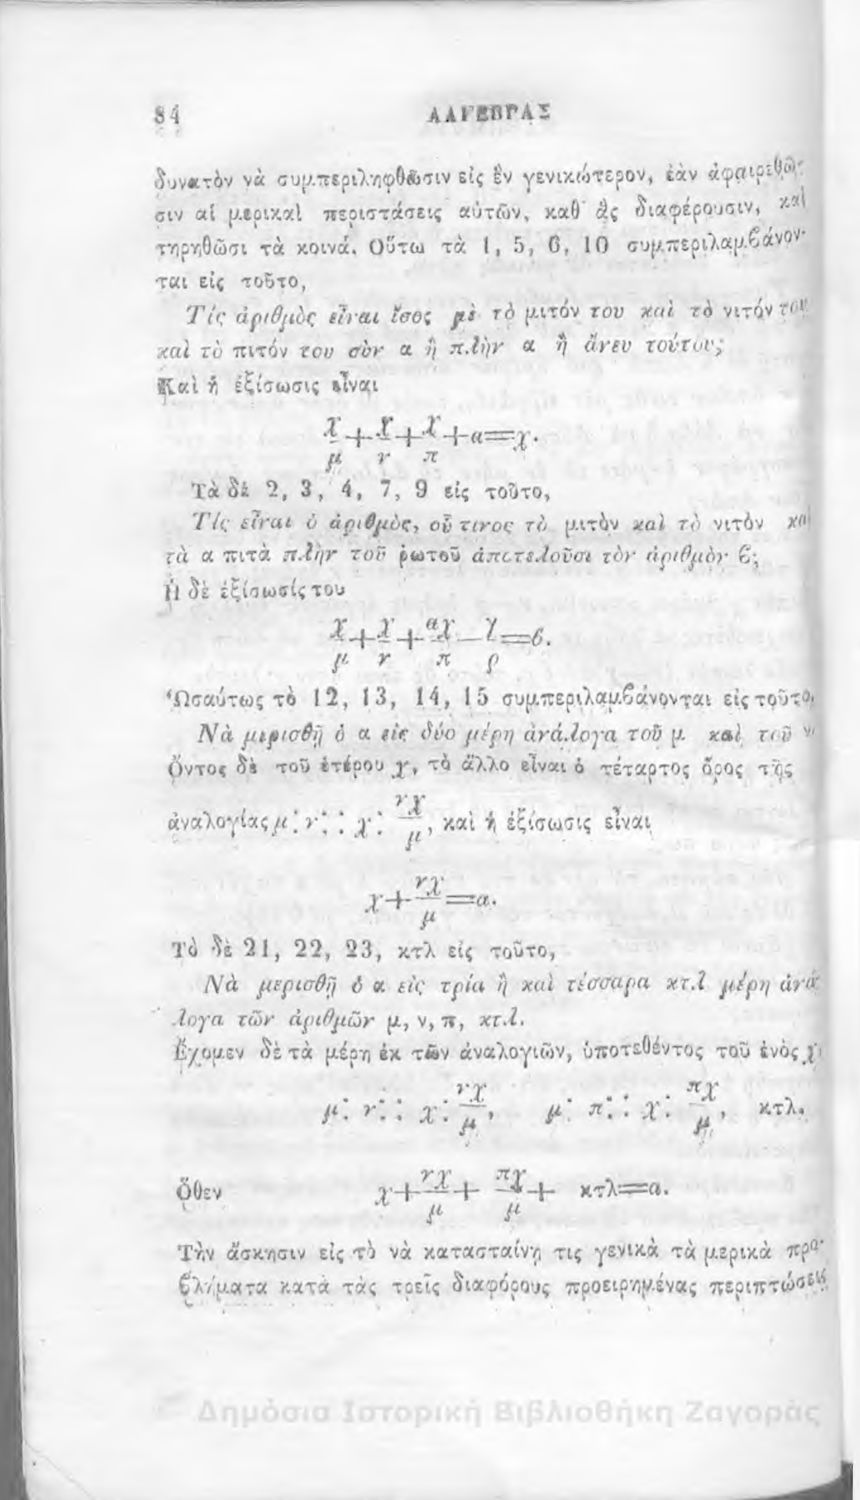 84 ΑΛΓΕΒΡΑΣ
δυνατὸν νὰ συμπεριληφθῶσιν εἰς ἓν γενικώτερον, ἐὰν ἀφαιρεθῶ-
σιν αἱ μερικαὶ περιστάσεις αὐτῶν, καθ' ἃς διαφέρουσιν, καὶ
τηρηθῶσι τὰ κοινά. Οὕτω τὰ 1, 5, 6, 10 συμπεριλαμβάνον-
ται εἰς τοῦτο,
Τίς ἀριθμὸς εἶναι ἴσος μὲ τὸ μιτόν του καὶ τὸ νιτόν του
καὶ τὸ πιτόν του σὺν α ἢ πλὴν α ἢ ἄνευ τούτου;
Καὶ ἡ ἐξίσωσις εἶναι
χ/μ + χ/ν + χ/π + α = χ.
Τὰ δὲ 2, 3, 4, 7, 9 εἰς τοῦτο,
Τίς εἶναι ὁ ἀριθμὸς, οὗ τινος τὸ μιτὸν καὶ τὸ νιτὸν καὶ
τὰ α πιτὰ πλὴν τοῦ ρωτοῦ ἀποτελοῦσι τὸν ἀριθμὸν ϐ;
Ἡ δὲ ἐξίσωσίς του
χ/μ + χ/ν + αχ/π — χ/ρ = ϐ.
Ὡσαύτως τὸ 12, 13, 14, 15 συμπεριλαμβάνονται εἰς τοῦτο,
Νὰ μερισθῇ ὁ α εἰς δύο μέρη ἀνάλογα τοῦ μ καὶ τοῦ ν
Ὄντος δὲ τοῦ ἑτέρου χ, τὸ ἄλλο εἶναι ὁ τέταρτος ὅρος τῆς
ἀναλογίας μ : ν :: χ : νχ/μ, καὶ ἡ ἐξίσωσις εἶναι
χ + νχ/μ = α.
Τὸ δὲ 21, 22, 23, κτλ εἰς τοῦτο,
Νὰ μερισθῇ ὁ α εἰς τρία ἢ καὶ τέσσαρα κτλ μέρη ἀνά
λογα τῶν ἀριθμῶν μ, ν, π, κτλ.
Ἔχομεν δὲ τὰ μέρη ἐκ τῶν ἀναλογιῶν, ὑποτεθέντος τοῦ ἑνὸς χ
μ : ν :: χ : νχ/μ, μ : π :: χ : πχ/μ, κτλ.
Ὅθεν χ + νχ/μ + πχ/μ + κτλ = α.
Τὴν ἄσκησιν εἰς τὸ νὰ κατασταίνῃ τις γενικὰ τὰ μερικὰ προ-
ϐλήματα κατὰ τὰς τρεῖς διαφόρους προειρημένας περιπτώσεις
Δημόσια Ιστορική Βιβλιοθήκη Ζαγοράς